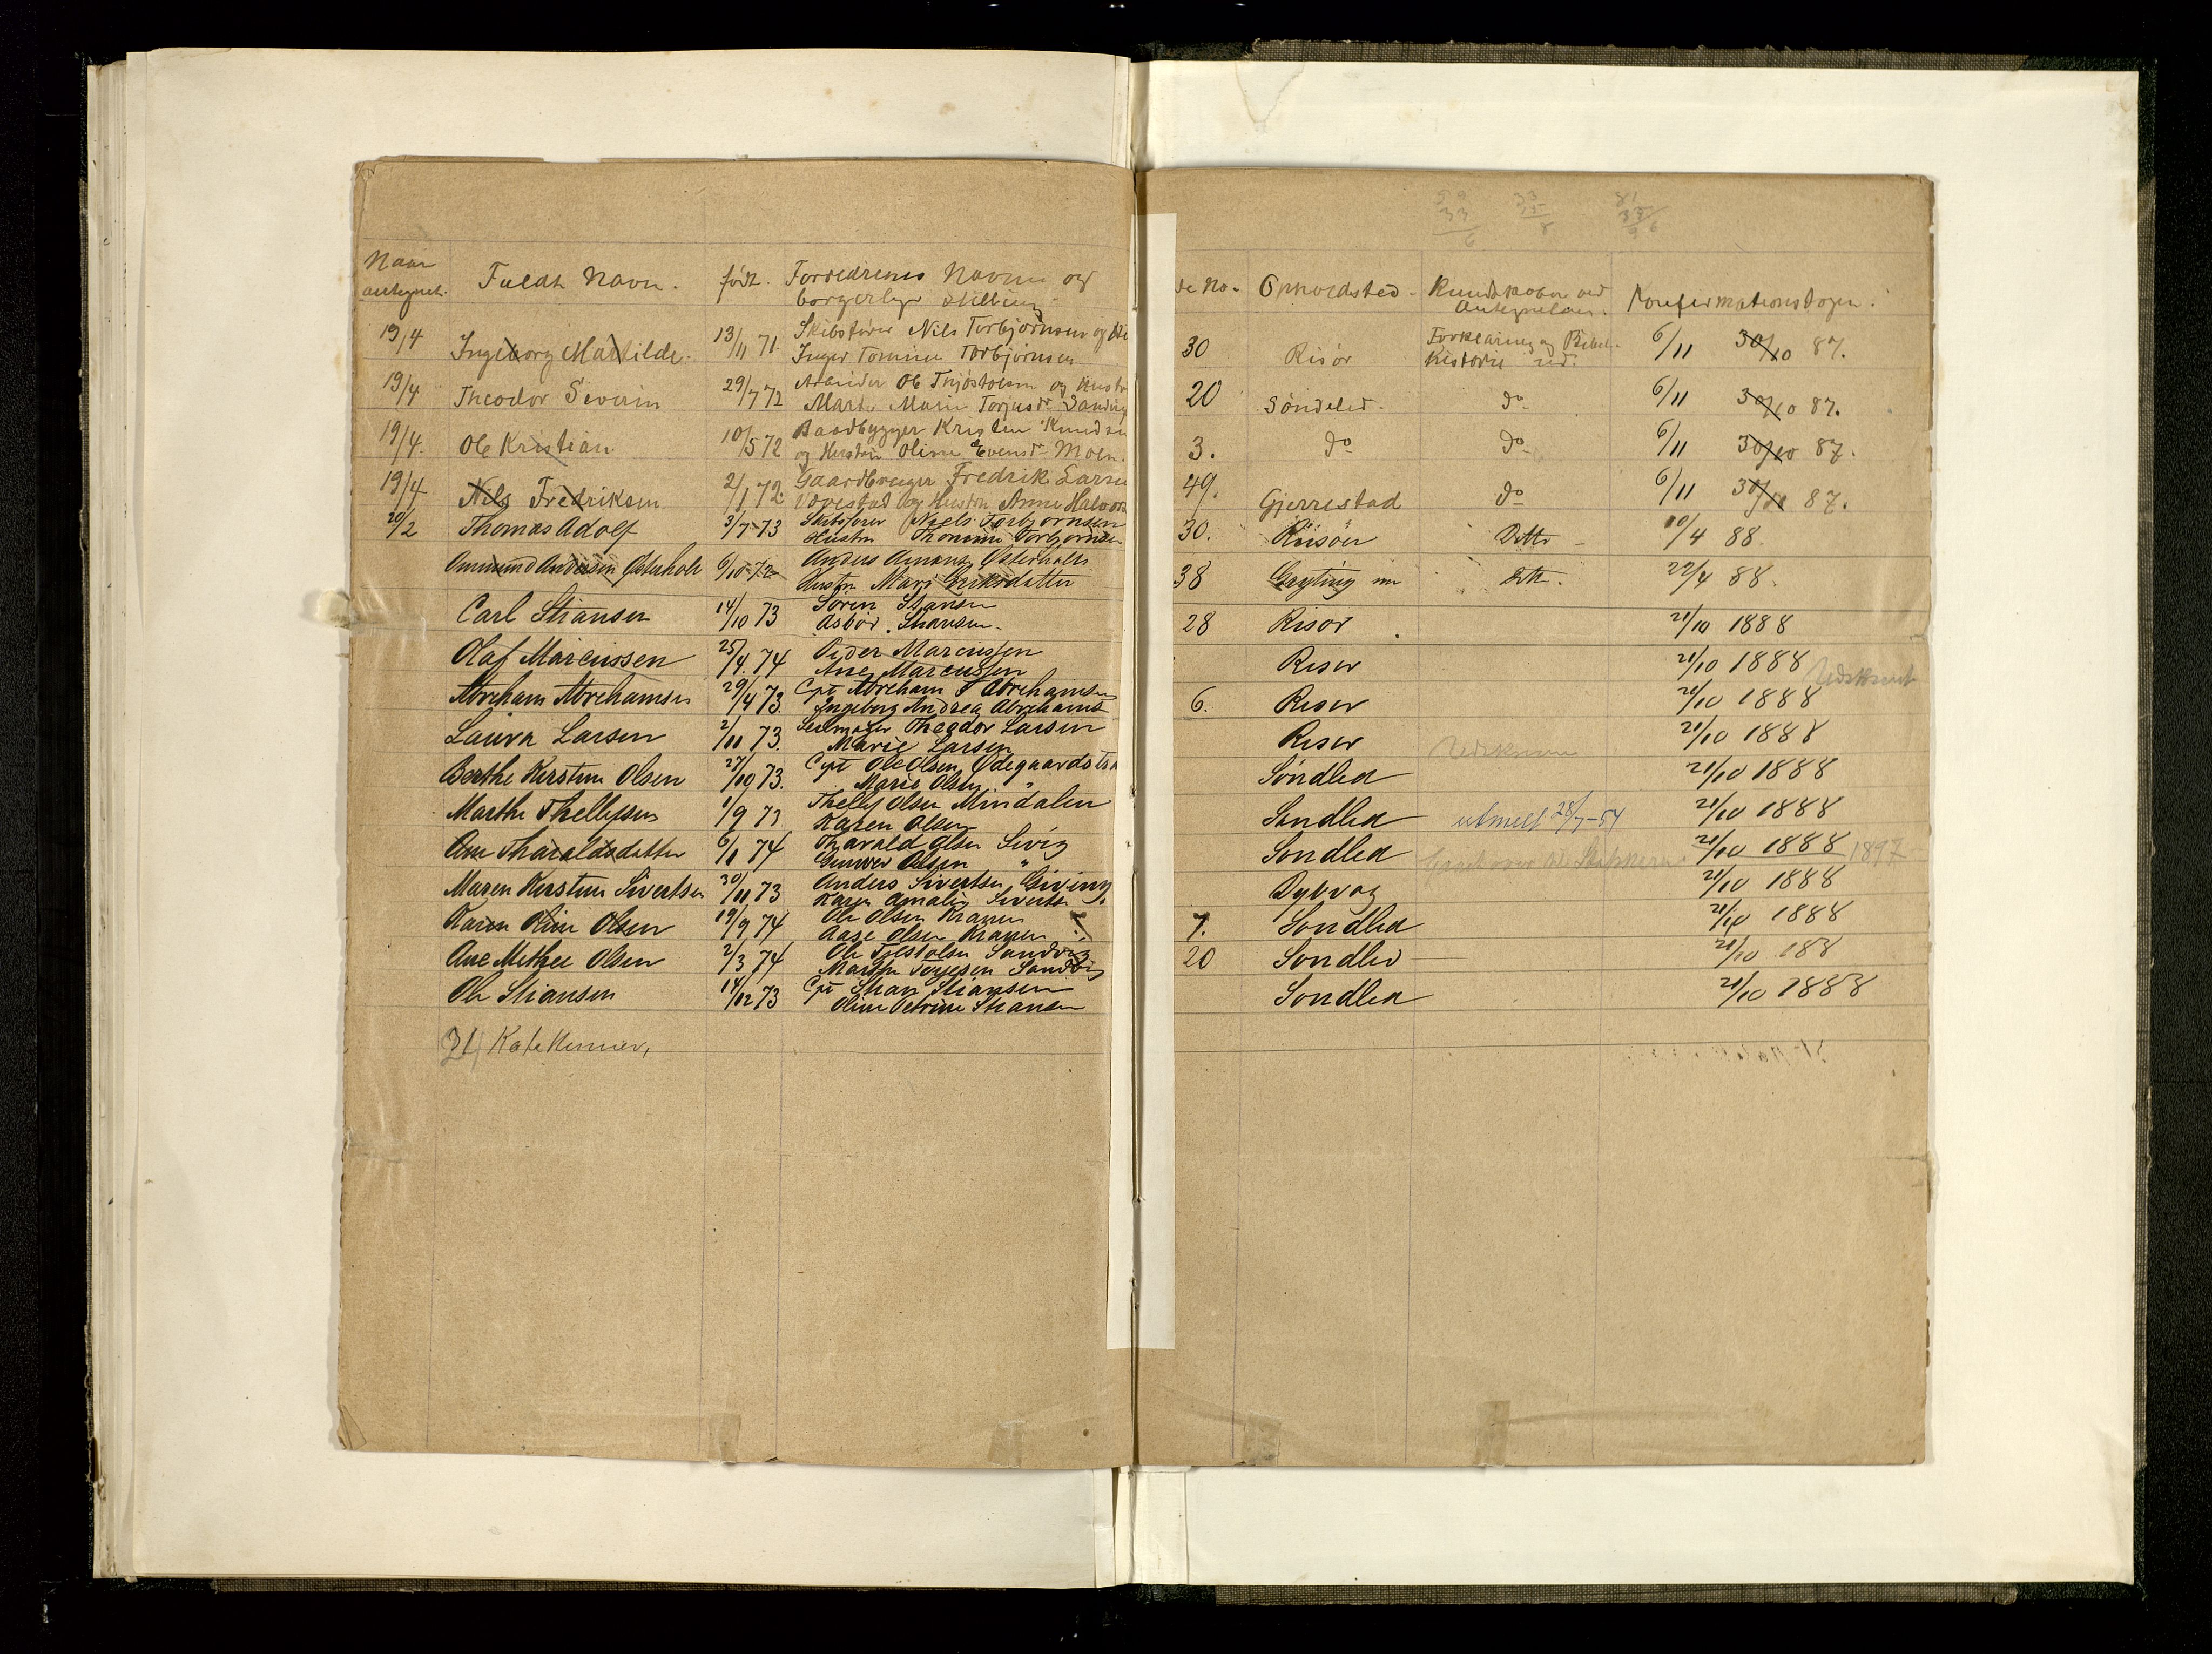 Naar antegnet. Fuldt Navn. født. Forældrenes Navne og borgerlige Stilling de No. Opholdsted. Kundskaber ved Antegnelsen. Konfirmationsdagen.
19/4 Ingeborg Matilde. 13/11 71. Skibsfører Nils Torbjørnsen og
Inger Tomine Torbjørnsen 30 Risør Forklaring og Bibelhistorie 6/11 30/10 87.
19/4 Theodor Severin 29/7 72 Arbeider Ole Thjøstolsen og Hustr
Marte Marie Torjusdr 20 Søndeled. do 6/11 30/10 87.
19/4. Ole Kristian 10/5 72 Baadbygger Kristen Knudsen
og Hustru Oline Evensdr Moen. 3. do do 6/11 30/10 87.
19/4 Nils Fredriksen 2/1 72. Gaardbruger Fredrik Larsen
og Hustru Anne Halvors 49. Gjerrestad do 6/11 30/10 87.
20/2 Thomas Adolf 3/7-73 Skibsfører Niels Torbjørnsen
Hustru Thomine Torbjørnsen 30. Risøer Ditto 10/4 88.
Ammund Andersen Østerholt 6/10-72 Anders Østerholt
Hustru Mari Eriksdatter 38 22/4 88.
Carl Stiansen 14/10 73 Sørin Stiansen
Asbør. Stiansen. 28 Risør 21/10 1888
Olaf Marcussen 25/4. 74 Peder Marcussen
Ane Marcussen Riser 21/10 1888
Abreham Abrehamsen 29/4 73 Cpt Abreham Abrehamsen
Ingeborg Andrea Abrehams 6. Riser 21/10 1888
Laura Larsen 2/11 73. Seilmager Theodor Larsen
Marie Larsen Riser 21/10 1888
Berthe Kerstine Olsen 27/10 73. Cpt Ole Olsen
Marie Olsen " Søndled 21/10 1888
Marthe Thellefsen 1/9 73 Thellef Olsen Mindalen
Karen Olsen Søndled utmeldt 28/7-54 21/10 1888
Ane Tharaldsdatter 6/1 74 Tharald Olsen
Gunver Olsen " Sondled 21/10 1888 1897
Maren Kerstine Sivertsen 30/11 73 Anders Sivertsen Giving
Karen Amalie Sivertsen Dypvag 21/10 1888
Karen Oline Olsen 19/9 74 Ole Olsen Kranen
Aase Olsen Kranen 7. Sondled 21/10 1888
Ane Methee Olsen 2/3 74 Ole Sandvig
Marthe Torjesen Sandvig 20 Sondled 21/10 188
Ole Stiansen 14/12 73 Cpt Stian Stiansen
Oline Petrine Stiansen Sondled 21/10 1888